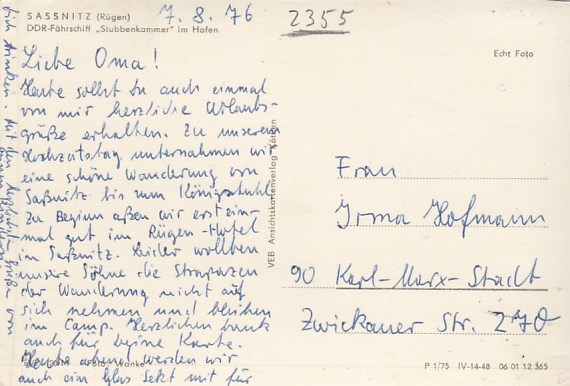 SASSNITZ (Rügen)
DDR-Fährschiff „Stubbenkammer" im Hafen
7.8.76
2355
Echt Foto
Liebe Oma!
Heute sollst du auch einmal
von mir herzliche Urlaubs-
grüße erhalten. Zu unserem
Hochzeitstag unternahmen wir
eine schöne Wanderung von
Saßnitz bis zum Königsstuhl.
Zu Beginn aßen wir erst ein-
mal gut im Rügen-Hotel
in Saßnitz. Leider wollten
unsere Söhne die Strapazen
der Wanderung nicht auf
sich nehmen und bleiben
im Camp. Herzlichen Dank
auch für Deine Karte.
Heute abend werden wir
auch ein Glas Sekt mit für
Dich trinken. Mit den herzlichsten Grüßen von
VEB Ansichtskartenverlag Köthen
Frau
Irma Hofmann
90 Karl-Marx-Stadt
Zwickauer Str. 270
P 1/75 IV-14-48 06 01 12 365